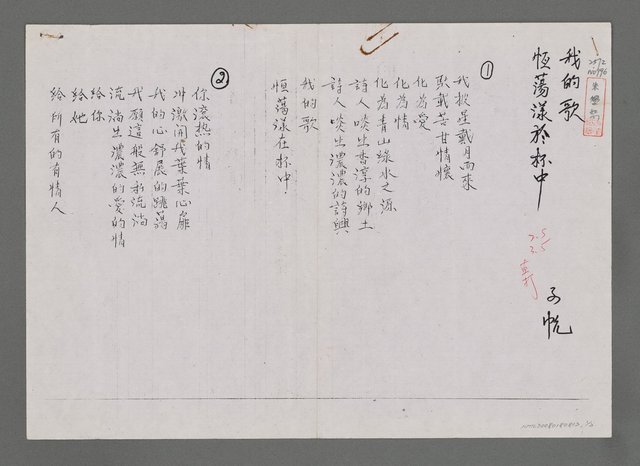 我的歌
恆蕩漾於杯中
子帆
2.5
3.5
直打
2572
NO196
①
我披星戴月而來
聚載苦甘情懷
化為愛
化為情
化為青山綠水之源
詩人啖出香淳的鄉土
詩人啖出濃濃的詩興
我的歌
恆蕩漾在杯中.
②
你滾熱的情
沖激開我葉葉心扉
我的心舒展的跳蕩
我願這般無私流淌
流淌出濃濃的愛的情
給你
給她
給所有的有情人